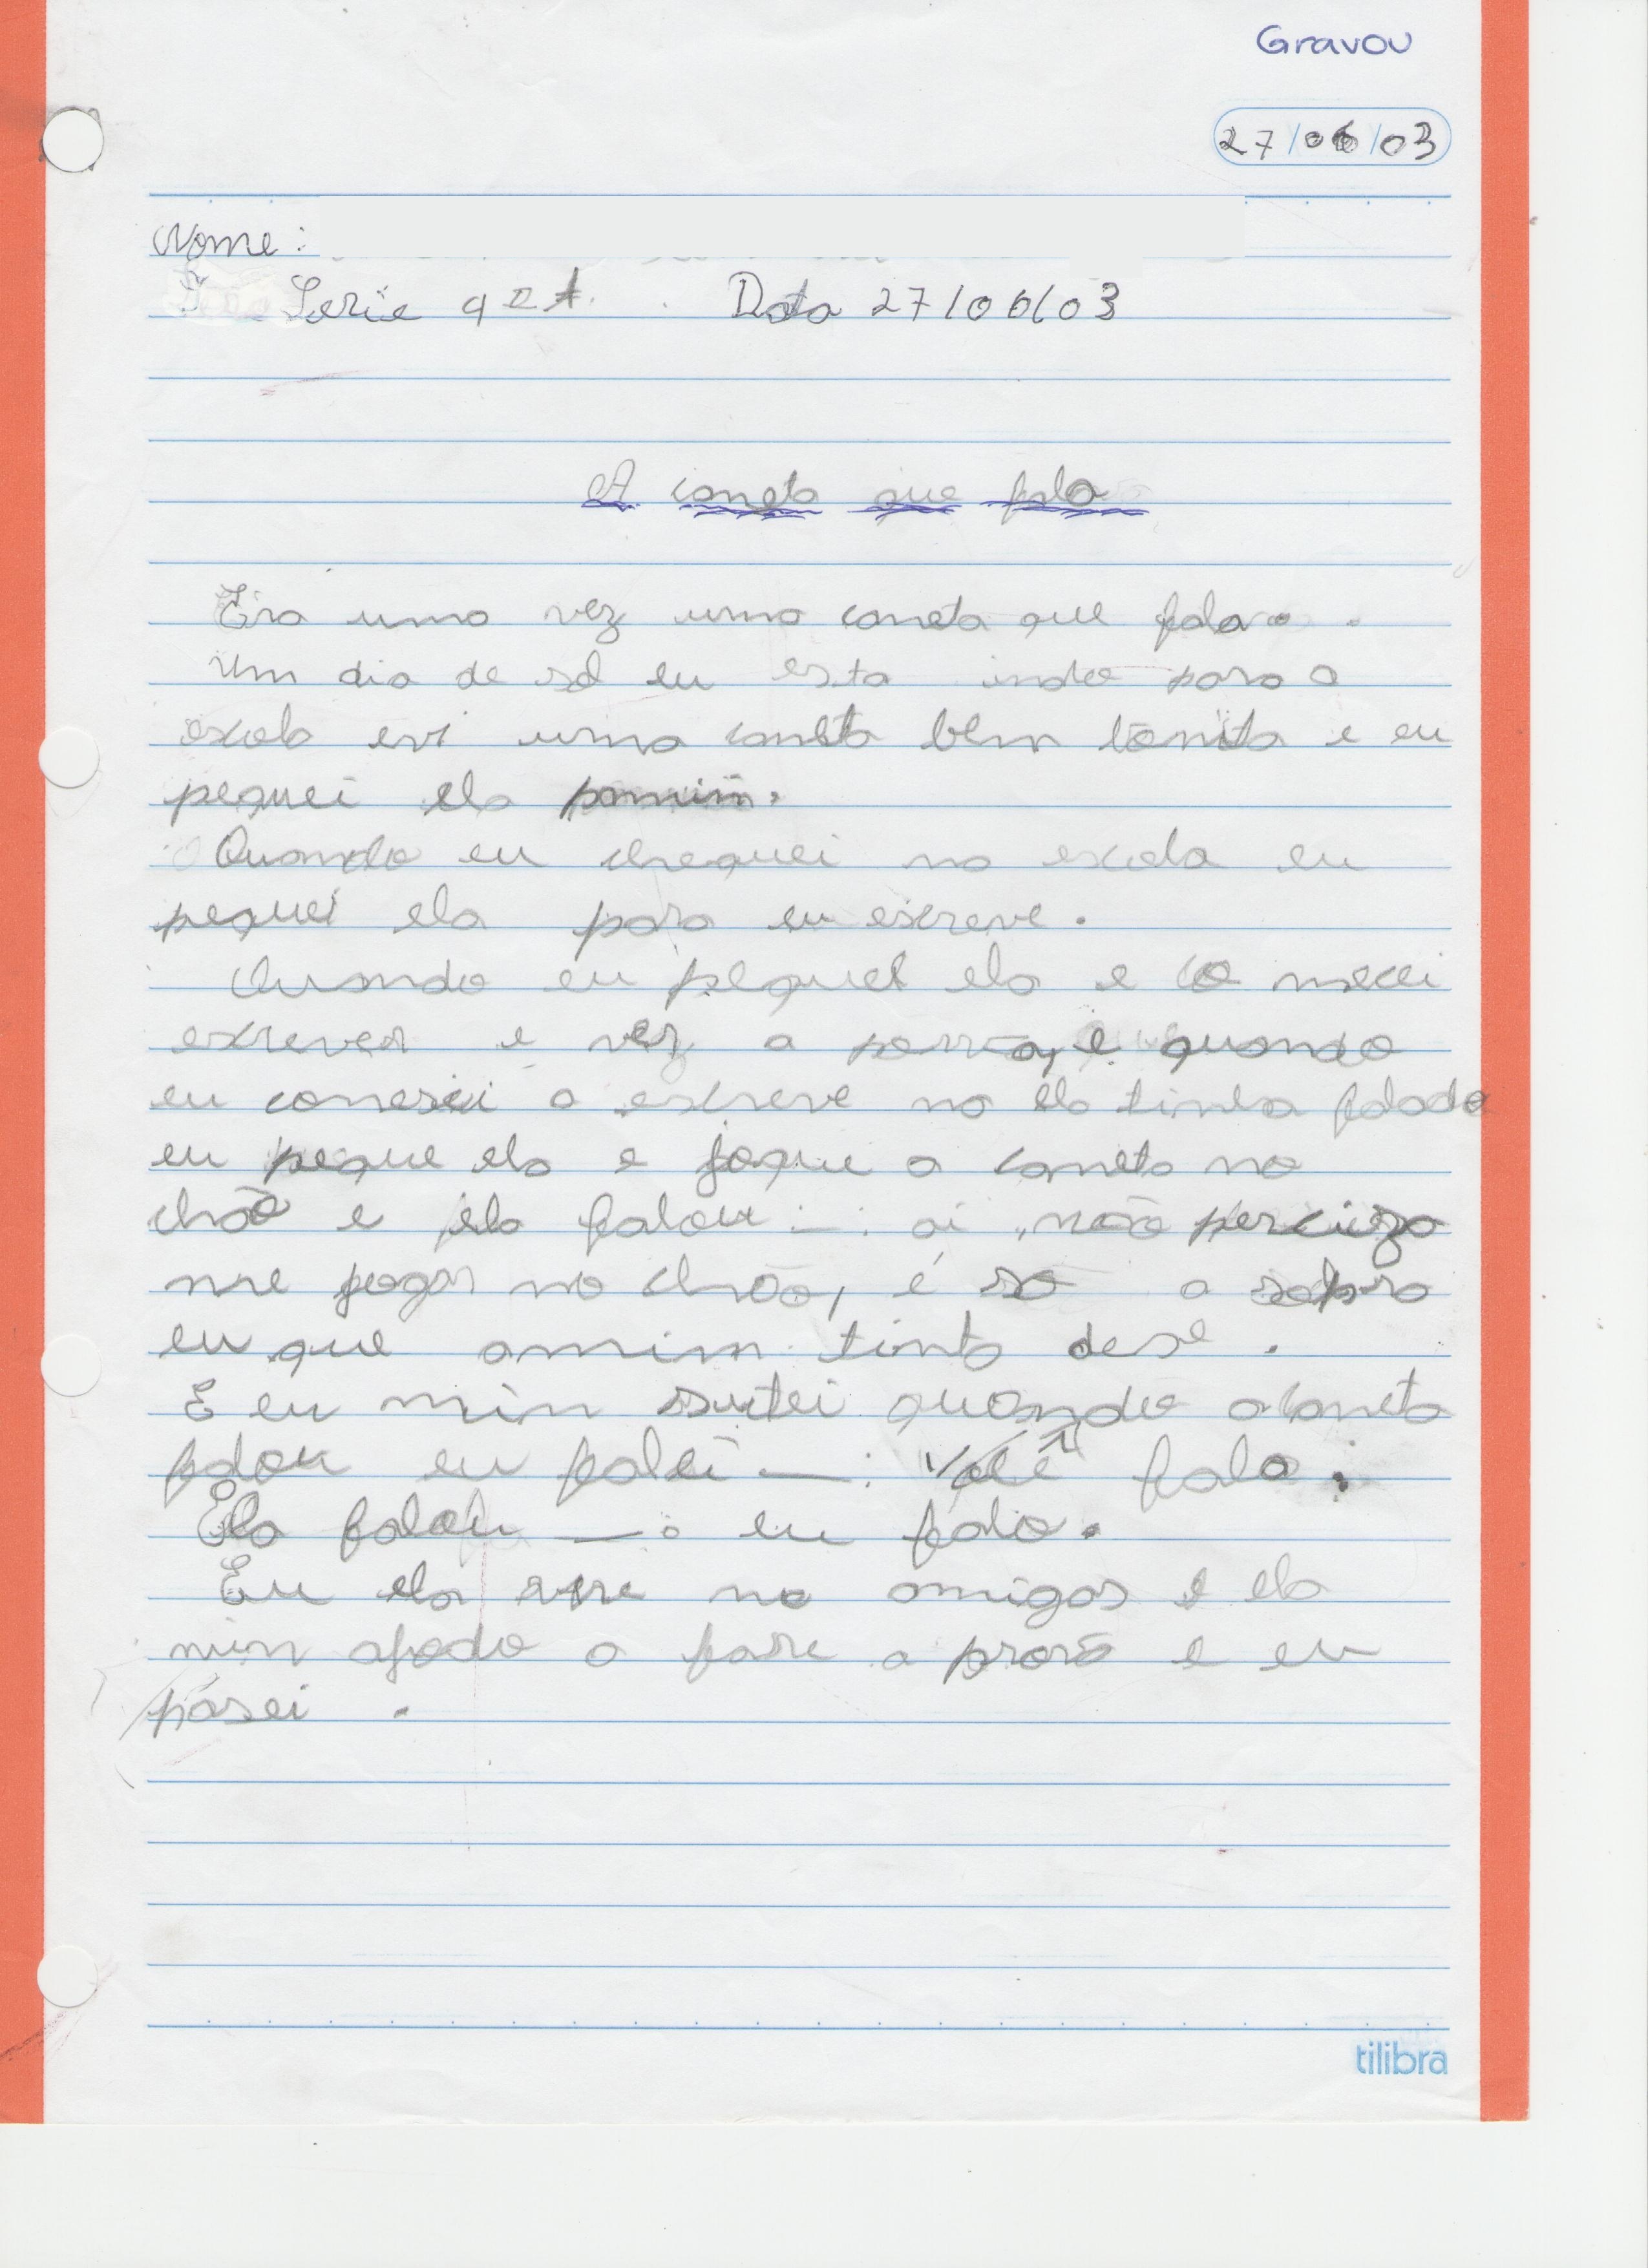 Gravou
27/06/03
Nome:
Serie 4ª A. Data 27/06/03
A caneta que fala
Era uma vez uma caneta que fala.
Um dia de sol eu esta indo para a
escola evi uma caneta bem bonita e eu
peguei ela pamim.
Quando eu cheguei na escola eu
peguei ela para eu escreve.
Quando eu peguei ela e co mecei
escrever e vez a e quando
eu comesei a escreve no ela tinha falado
eu pegue ela e jogue a caneta no
chão e ela falou —: ai, não percizo
me jogar no chão, é so a
eu que amim tinta
E eu min sutei quando a caneta
falou eu falei —: Você fala.
Ela falou —: eu falo.
Eu ela amigos e ela
min ajudo a fase a prova e eu
pasei.
tilibra